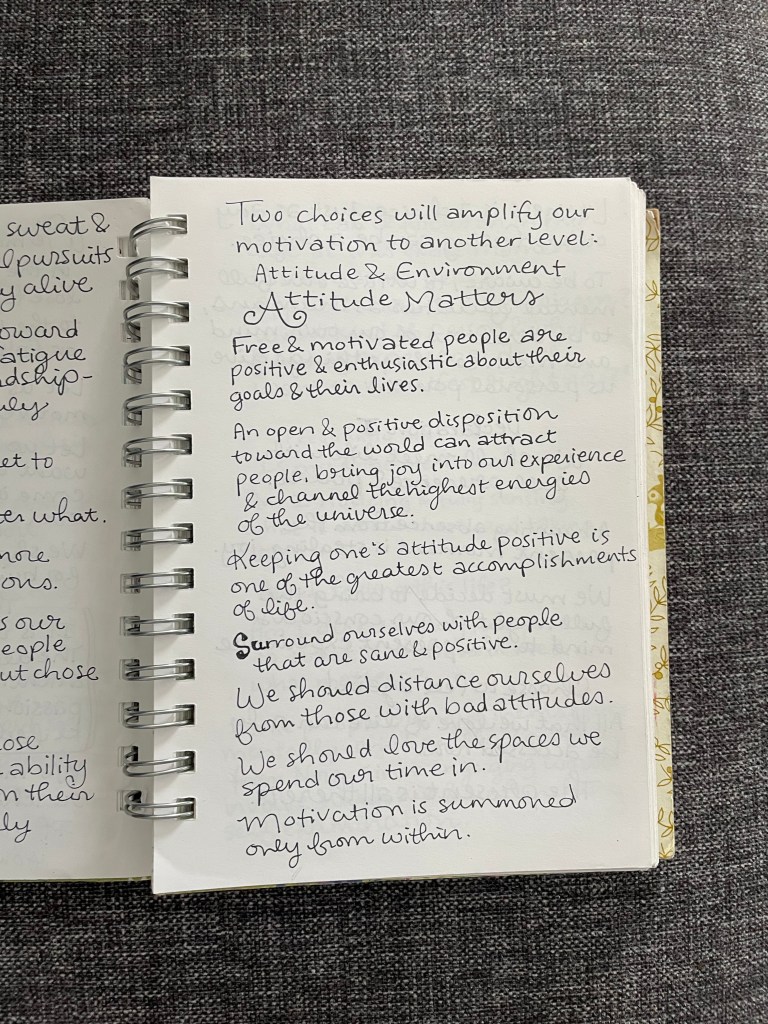 sweat &
pursuits
alive
oward
fatigue
ndship-
uly
et to
er what.
more
ons.
s our
eople
ut chose
ose
ability
n their
ly
Two choices will amplify our
motivation to another level:
Attitude & Environment
Attitude Matters
Free & motivated people are
positive & enthusiastic about their
goals & their lives.
An open & positive disposition
toward the world can attract
people, bring joy into our experience
& channel the highest energies
of the universe.
Keeping one's attitude positive is
one of the greatest accomplishments
of life.
Surround ourselves with people
that are sane & positive.
We should distance ourselves
from those with bad attitudes.
We should love the spaces we
spend our time in.
Motivation is summoned
only from within.